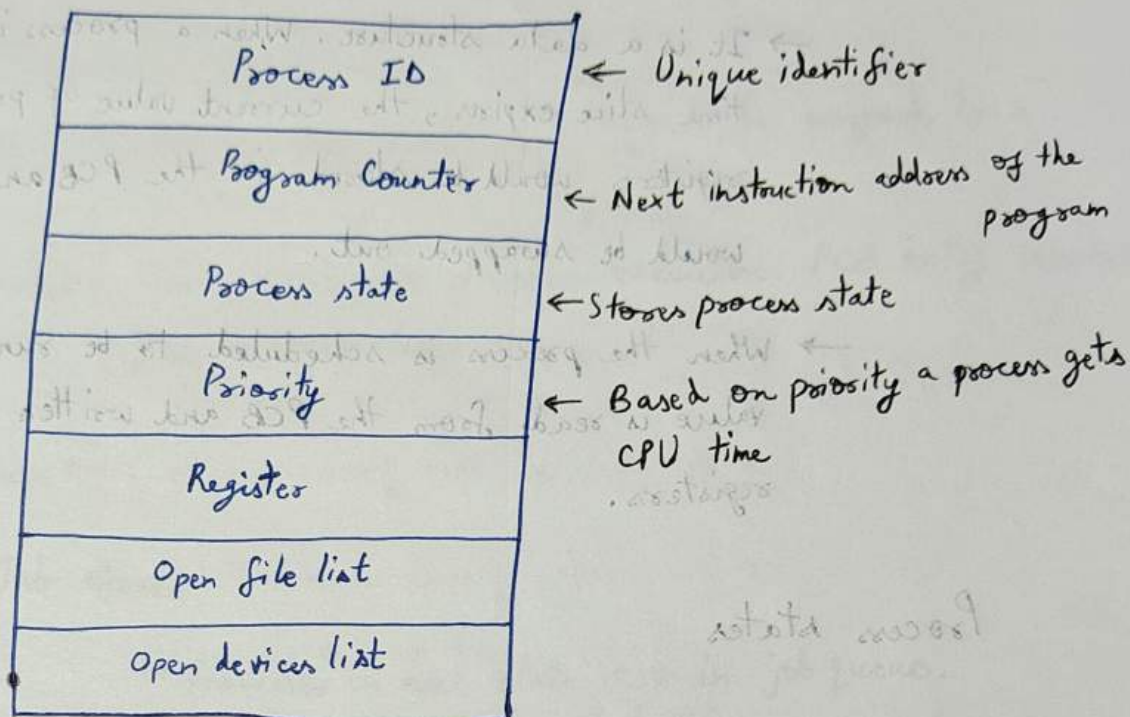 Process ID
← Unique identifier
Program Counter
← Next instruction address of the
program
Process state
← Stores process state
Priority
← Based on priority a process gets
CPU time
Register
Open file list
Open devices list